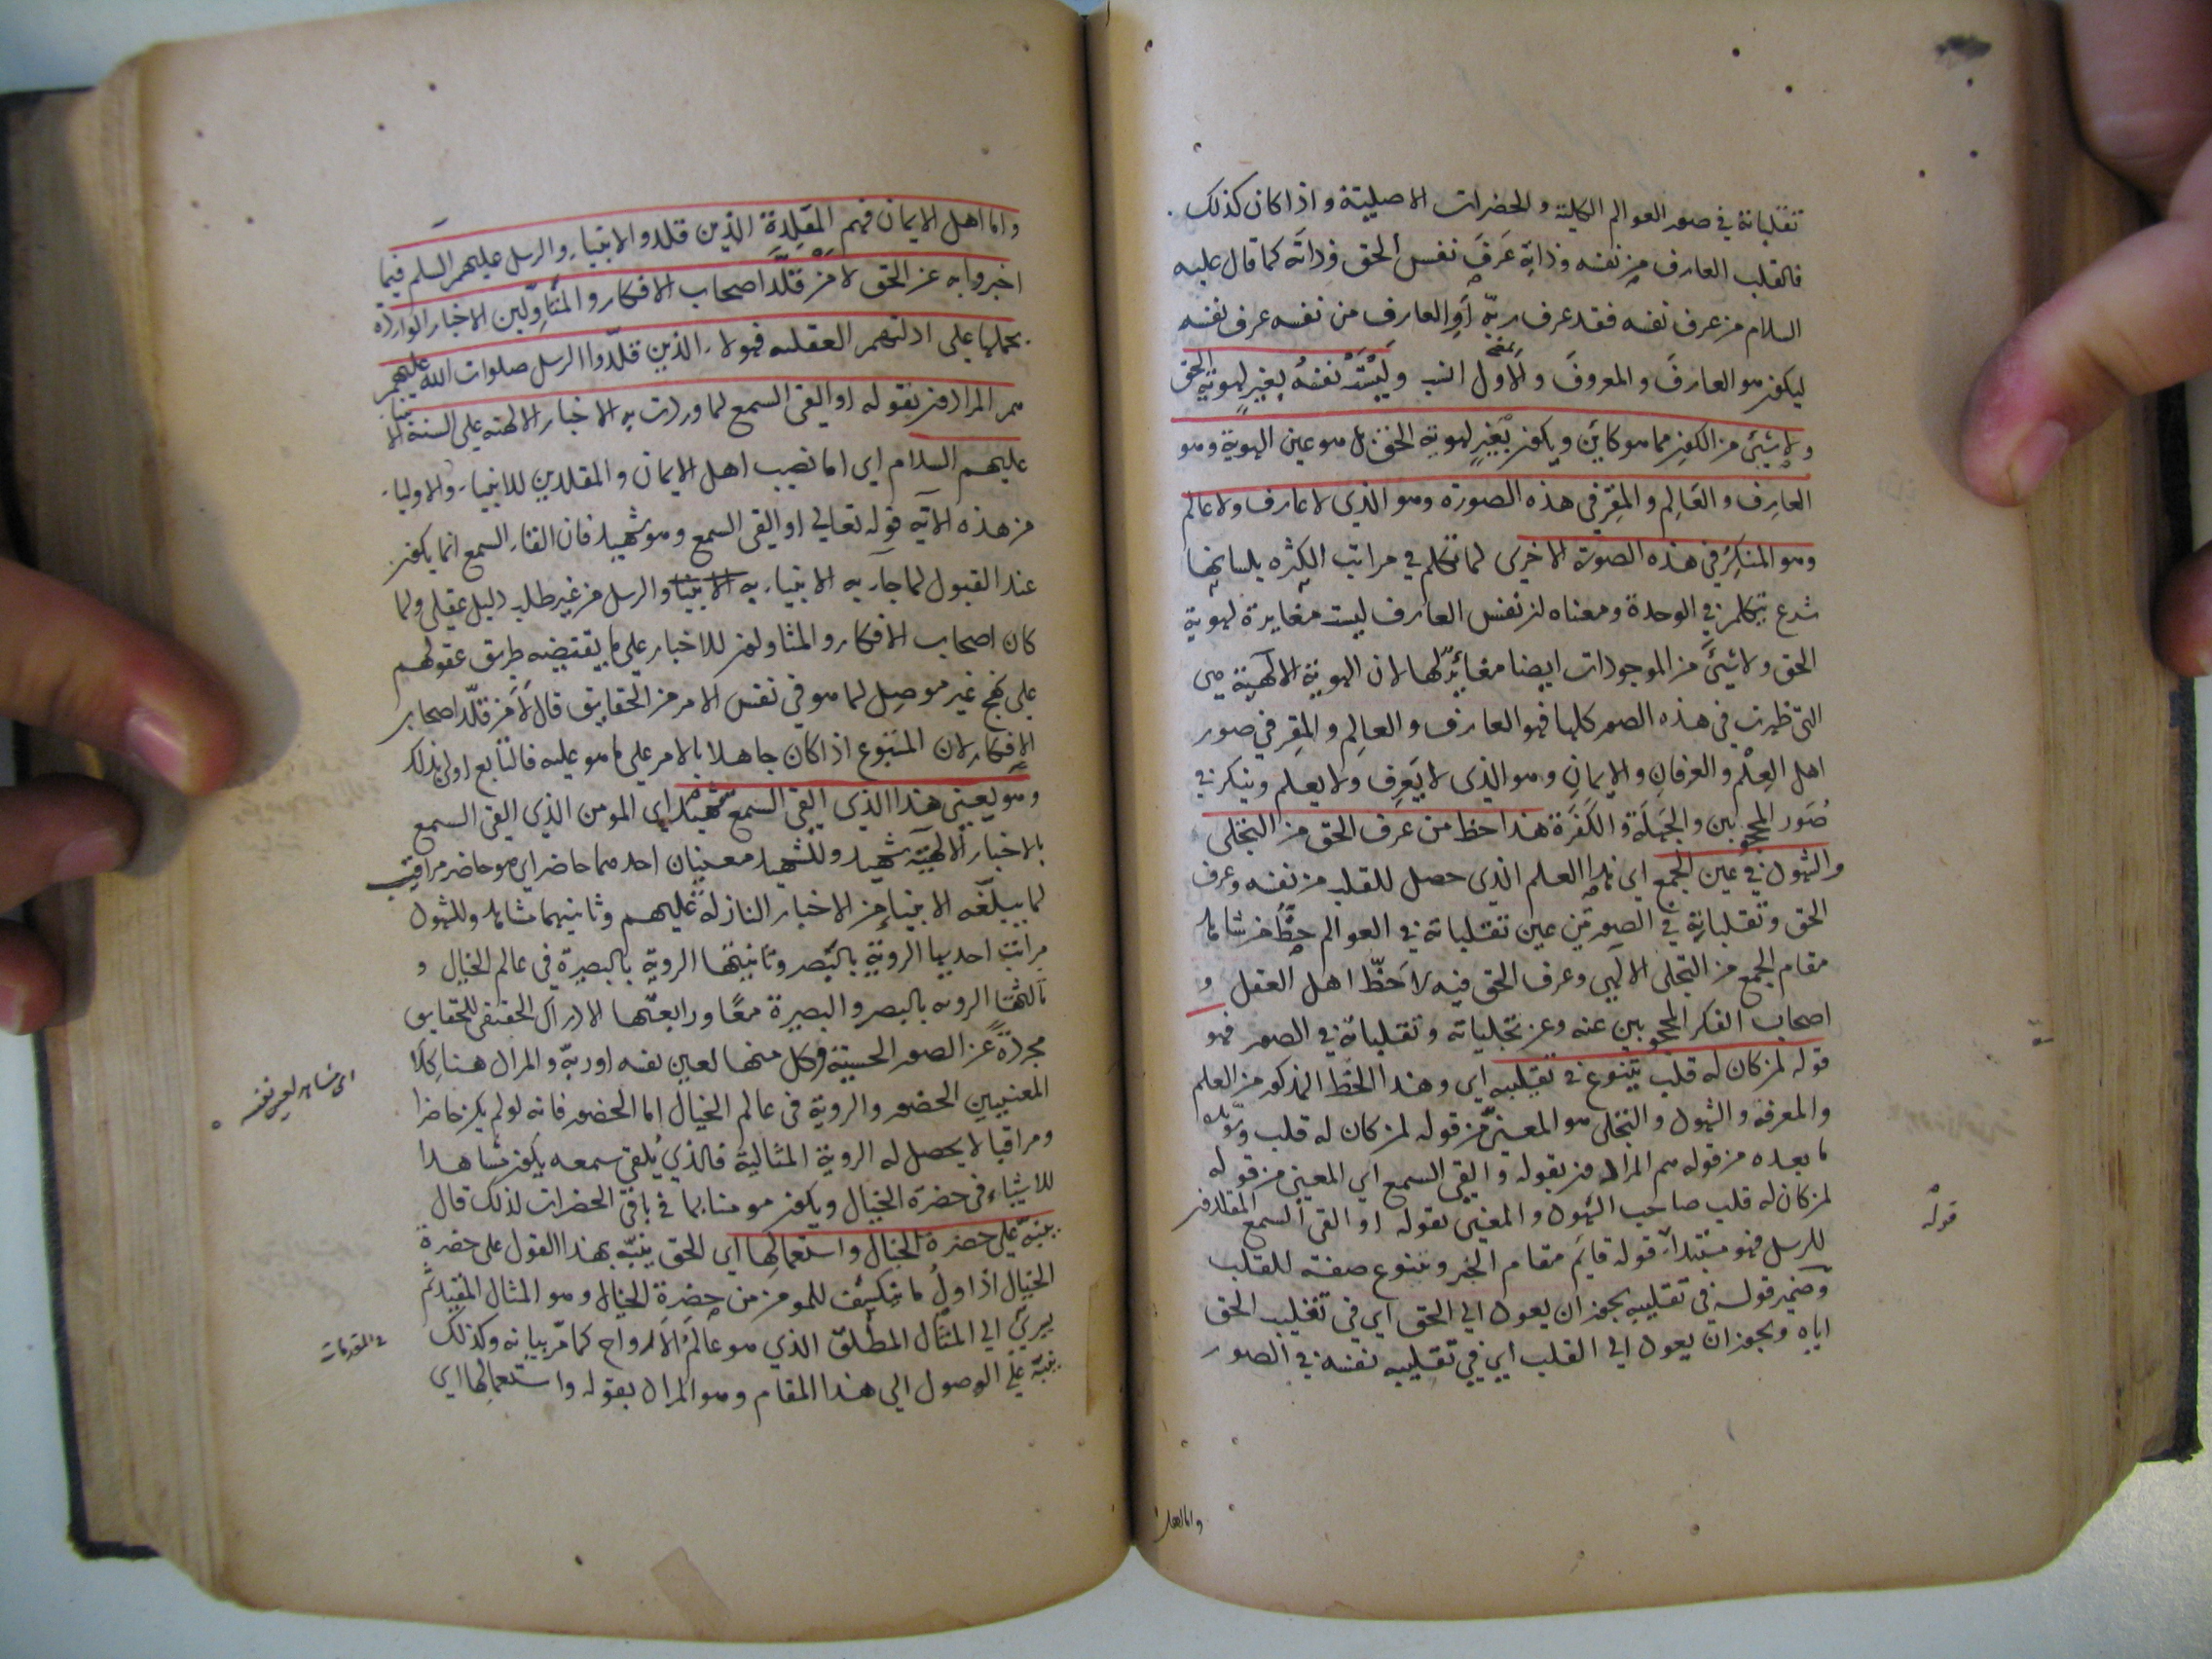 تقلباته في صور العوالم الكلية و الحضرات الاصلية و اذا كان كذلك
فالقلب العارف من نفسه و ذاته عَرَفَ نفس الحق و ذاته كما قال عليه
السلام من عرف نفسه فقد عرف ربه اَوِ العارف من نفسه عرف نفسه
ليكون هو العارفَ و المعروفَ و الاول انسب و لَيْسَتْ نفسُهُ بغيرٍ لهوية الحق
و لا شيئَ من الكون مما هو كاين و يكون بغيرٍ لهوية الحق بل هو عين الهوية و هو
العارِف و العَالِم و المقِرّ في هذه الصورة و هو الذي لا عارف و لا عالم
و هو المنكِرُ في هذه الصورة الاخرى لما تكلم في مراتب الكثرة بلسانها
شرع يتكلم في الوحدة و معناه ان نفس العارف ليست مغايرة لهوية
الحق و لا شيئَ من الموجودات ايضا مغايرٌ لها لان الهوية الالهية هي
التي ظهرت في هذه الصور كلها فهو العارف و العالِم و المقِر في صور
اهل العِلْم و العرفان و الايمانِ و هو الذي لا يَعرِف و لا يعلم و ينكر في
صُوَر المحجوبين و الجَهَلَة و الكَفَرَة هذا حظ من عرف الحق من التجلي
و الشهود في عين الجمع اى هذا العلم الذي حصل للقلب من نفسه و عرف
الحق و تقلباته في الصور من عين تقلباته في العوالم حظُّ من شاهد
مقام الجمع من التجلي الالهي و عرف الحق فيه لا حَظّ اهل العقل و
اصحاب الفكر المحجوبين عنه و عن تجلياته و تقلباته في الصور فهو
قوله لمن كان له قلب يتنوع في تقليبه اي و هذا الحَظّ المذكور من العلم
و المعرفة و الشهود و التجلي هو المعنيُّ من قوله لمن كان له قلب و يؤيده
ما بعده من قوله هم المراد من بقوله و القى السمع اي المعني من قوله
لمن كان له قلب صاحب الشهود و المعنيّ بقوله او القى السمع المقلدون
للرسل فهو مبتدأ قوله قايم مقام الخبر و يتنوع صفة للقلب
و ضمير قوله في تقليبه يجوز ان يعود الى الحق اي في تقليب الحق
اياه و يجوز ان يعود الى القلب اي في تقليبه نفسه في الصور
قوله
و اما اهل ا
و اما اهل الايمان فهم المقَلِدة الذين قلدوا الانبياء و الرسل عليهم السلم فيما
اخبروا به عن الحق لا مَنْ قلَّد اصحاب الافكار و المتأوِّلين الاخبار الواردة
بحملها على ادلتهم العقليه فهولاء الذين قلّدوا الرسل صلوات الله عليهم
هم المرادون بقوله او القى السمع لما وردت به الاخبار الالهيه على السنة الانبياء
عليهم السلام اي اما نصيب اهل الايمان و المقلدين للانبياء و الاولياء
من هذه الآيه قوله تعالى او القى السمع و هو شهيد فان القاء السمع انما يكون
عند القبول لما جاء به الانبياء به الانبيا و الرسل من غير طلب دليل عقلي و لما
كان اصحاب الافكار و المتاولون للاخبار على ما يقتضيه طريق عقولهم
على نهج غير موصل لما هو في نفس الامر من الحقايق قال لا من قلّد اصحاب
الافكار لان المتبوع اذا كان جاهلا بالامر على ما هو عليه فالتابع اولى بذلك
و هو يعني هذا الذي القى السمع شهيد اي المومن الذي القى السمع
بالاخبار الالهيّة شهيد و للشهيد معنيان احدهما حاضر اي هو حاضر مراقب
لما يبلّغه الانبياء من الاخبار النازلة عليهم و ثانيهما مشاهد و للشهود
مراتب احديها الروية بالبَصر و ثانيتها الروية بالبصيرة في عالم الخيال و
ثالثها الرويه بالبصر و البصيرة معًا و رابعتها الادراك الحقيقي للحقايق
مجردةً عن الصور الحسية و كل منها لعين نفسه او ربه و المراد هنا كِلَا
المعنيين الحضور و الروية في عالم الخيال اما الحضور فانه لو لم يكن حاضرا
و مراقبا لا يحصل له الروية المثالية فالذي يُلقي سمعه يكون مشاهدا
للاشياء في حضرة الخيال و يكون مومنا بما في باقي الحضرات لذلك قال
ينبّه على حضرة الخيال و استعمالها اي الحق ينبّه بهذا القول على حضرة
الخيال اذ اول ما ينكشف للمومن من حضرة الخيال و هو المثال المقيد ثم
يسري الى المثال المطلق الذي هو عالَم الارواح كما مَرّ بيانه و كذلك
ينبّه على الوصول الى هذا المقام و هو المراد بقوله و استعمالها اي
اى شاهد لعين نفسه
في المقدمات